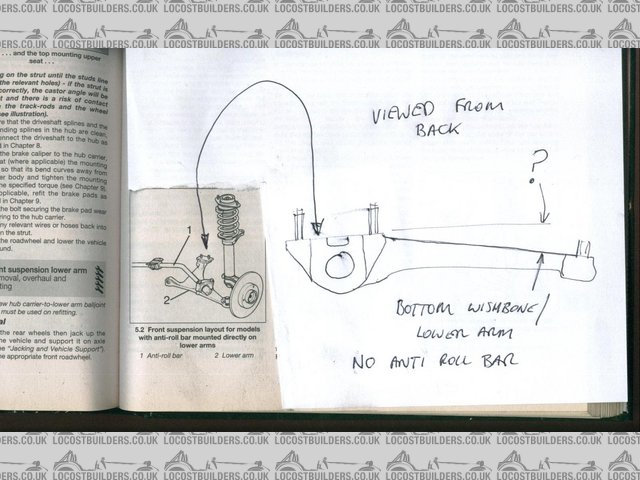 LOCOSTBUILDERS.CO.UK LOCOSTBUILDERS.CO.UK LOCOSTBUILDERS.CO.UK
. . . and the top mounting upper
seat . . .
ng on the strut until the studs line
the relevant holes) - if the strut is
correctly, the castor angle will be
t and there is a risk of contact
the track-rods and the wheel
see illustration).
re that the driveshaft splines and the
nding splines in the hub are clean,
onnect the driveshaft to the hub as
d in Chapter 8.
the brake caliper to the hub carrier,
at (where applicable) the mounting
so that its bend curves away from
er body and tighten the mounting
he specified torque (see Chapter 9).
pplicable, refit the brake pads as
d in Chapter 9.
the bolt securing the brake pad wear
ring to the hub carrier.
ny relevant wires or hoses back into
n the strut.
the roadwheel and lower the vehicle
und.
nt suspension lower arm
moval, overhaul and
ting
ew hub carrier-to-lower arm balljoint
must be used on refitting.
al
the rear wheels then jack up the
he vehicle and support it on axle
e "Jacking and Vehicle Support").
he appropriate front roadwheel.
1
2
5.2 Front suspension layout for models
with anti-roll bar mounted directly on
lower arms
1 Anti-roll bar 2 Lower arm
VIEWED FROM
BACK
?
BOTTOM WISHBONE/
LOWER ARM
NO ANTI ROLL BAR
LOCOSTBUILDERS.CO.UK LOCOSTBUILDERS.CO.UK LOCOSTBUILDERS.CO.UK
LOCOSTBUILDERS.CO.UK LOCOSTBUILDERS.CO.UK LOCOSTBUILDERS.CO.UK